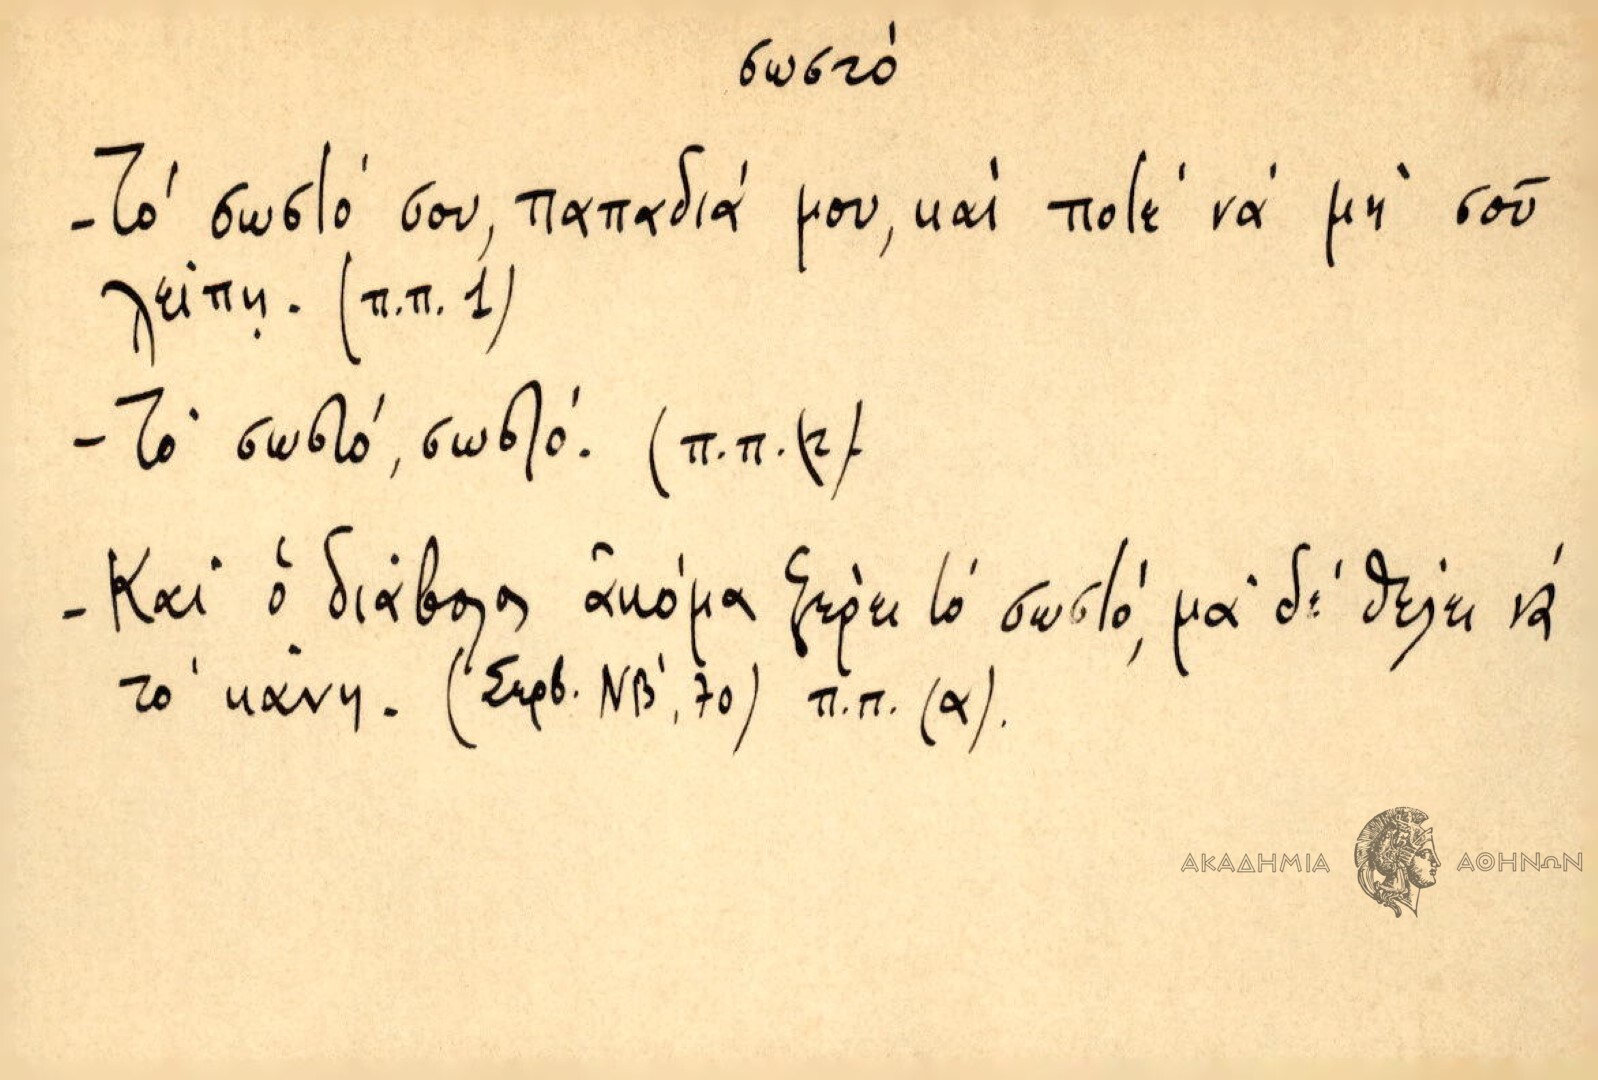 σωστό
- Τό σωστό σου, παπαδιά μου, καὶ ποτέ νά μὴ σοῦ
λείπῃ. (π.π. 1)
- Τὸ σωστό, σωστό. (π.π. (2).
- Καὶ ὁ διάβολος ἀκόμα ξέρει τό σωστό, μὰ δέ θέλει νά
τό κάνη. (Σερβ. ΝΒ', 70) π.π. (α).
ΑΚΑΔΗΜΙΑ ΑΘΗΝΩΝ